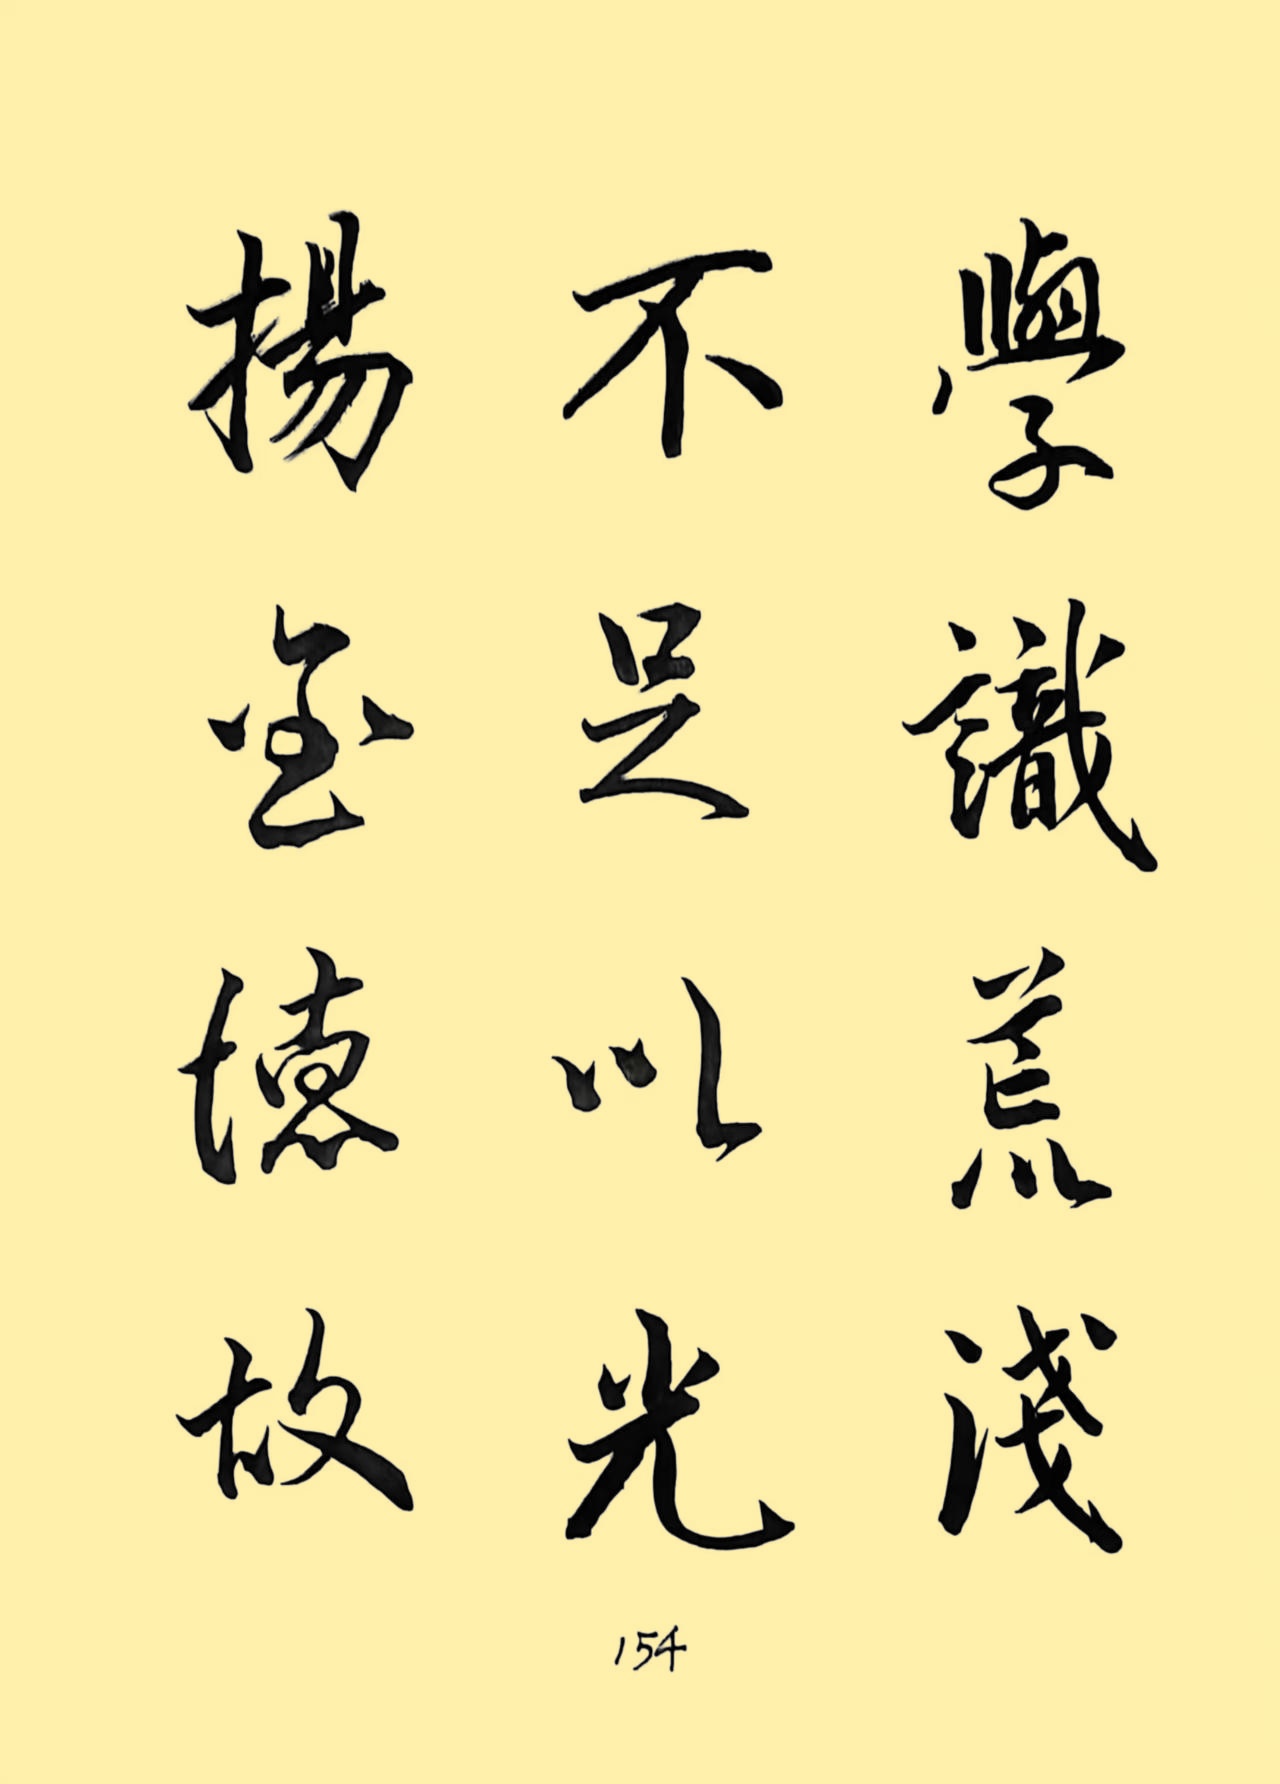 學識荒淺
不足以光
揚至德故
154